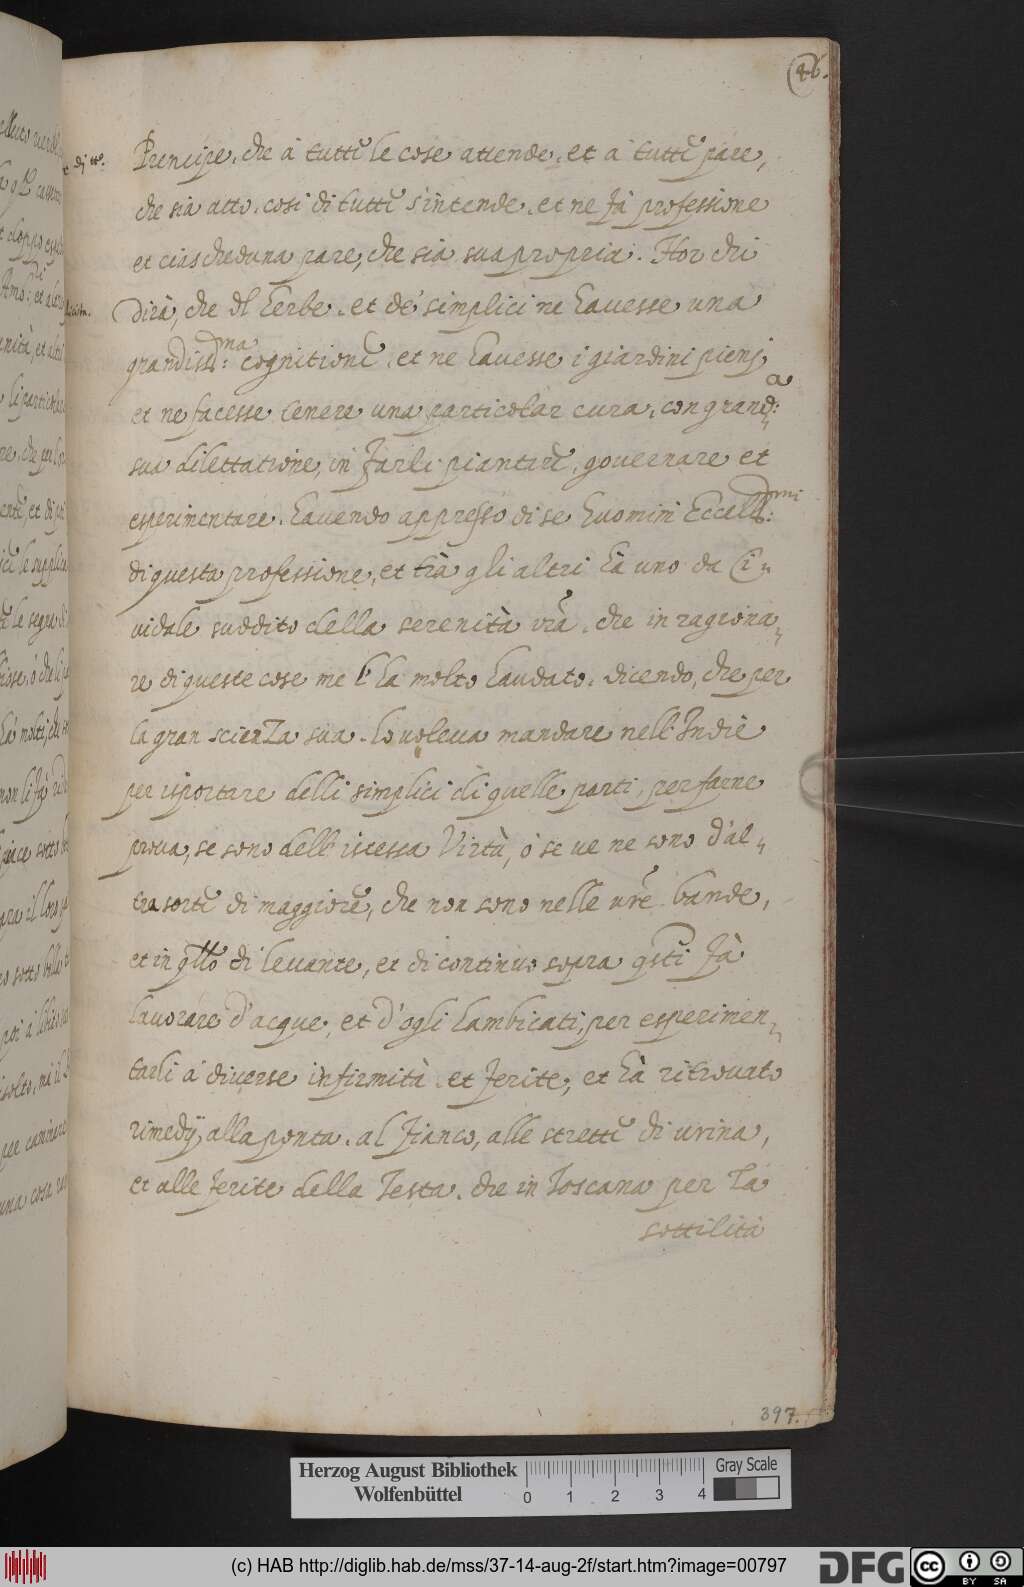 46.
Prencipe, che à tutte le cose attende, et à tutte pare,
che sia atto, cosi di tutte s'intende, et ne fà professione
et ciascheduna pare, che sia sua propria. Hor chi
dirà, che dl herbe, et de' simplici ne havesse una
grandiss:ma cognitione, et ne havesse i giardini pienj
et ne facesse tenere una particolar cura, con grand:a
sua dilettatione, in farli piantare, governare et
esperimentare, havendo appresso di se huomini Eccell:mi
di questa professione, et trà gli altri hà uno da Ci-
vidale suddito della serenità vrã, che in ragiona-
re di queste cose me l'ha molto laudato, dicendo, che per
la gran scienza sua, lo voleva mandare nell'Indie
per riportare delli simplici di quelle parti, per farne
prova, se sono dell'istessa Virtù, ò se ve ne sono d'al-
tra sorte di maggiore, che non sono nelle vrẽ bande,
et in qllo di levante, et di continuo sopra qsti fà
lavorare d'acque, et d'ogli lambicati, per esperimen-
tarli à diverse infirmità, et ferite, et hà ritrovato
rimedij alla ponta, al fianco, alle strette di urina,
et alle ferite della Testa, che in Toscana per la
sottilità
397.
Herzog August Bibliothek
Wolfenbüttel
0 1 2 3 4
Gray Scale
(c) HAB http://diglib.hab.de/mss/37-14-aug-2f/start.htm?image=00797
DFG
cc BY SA